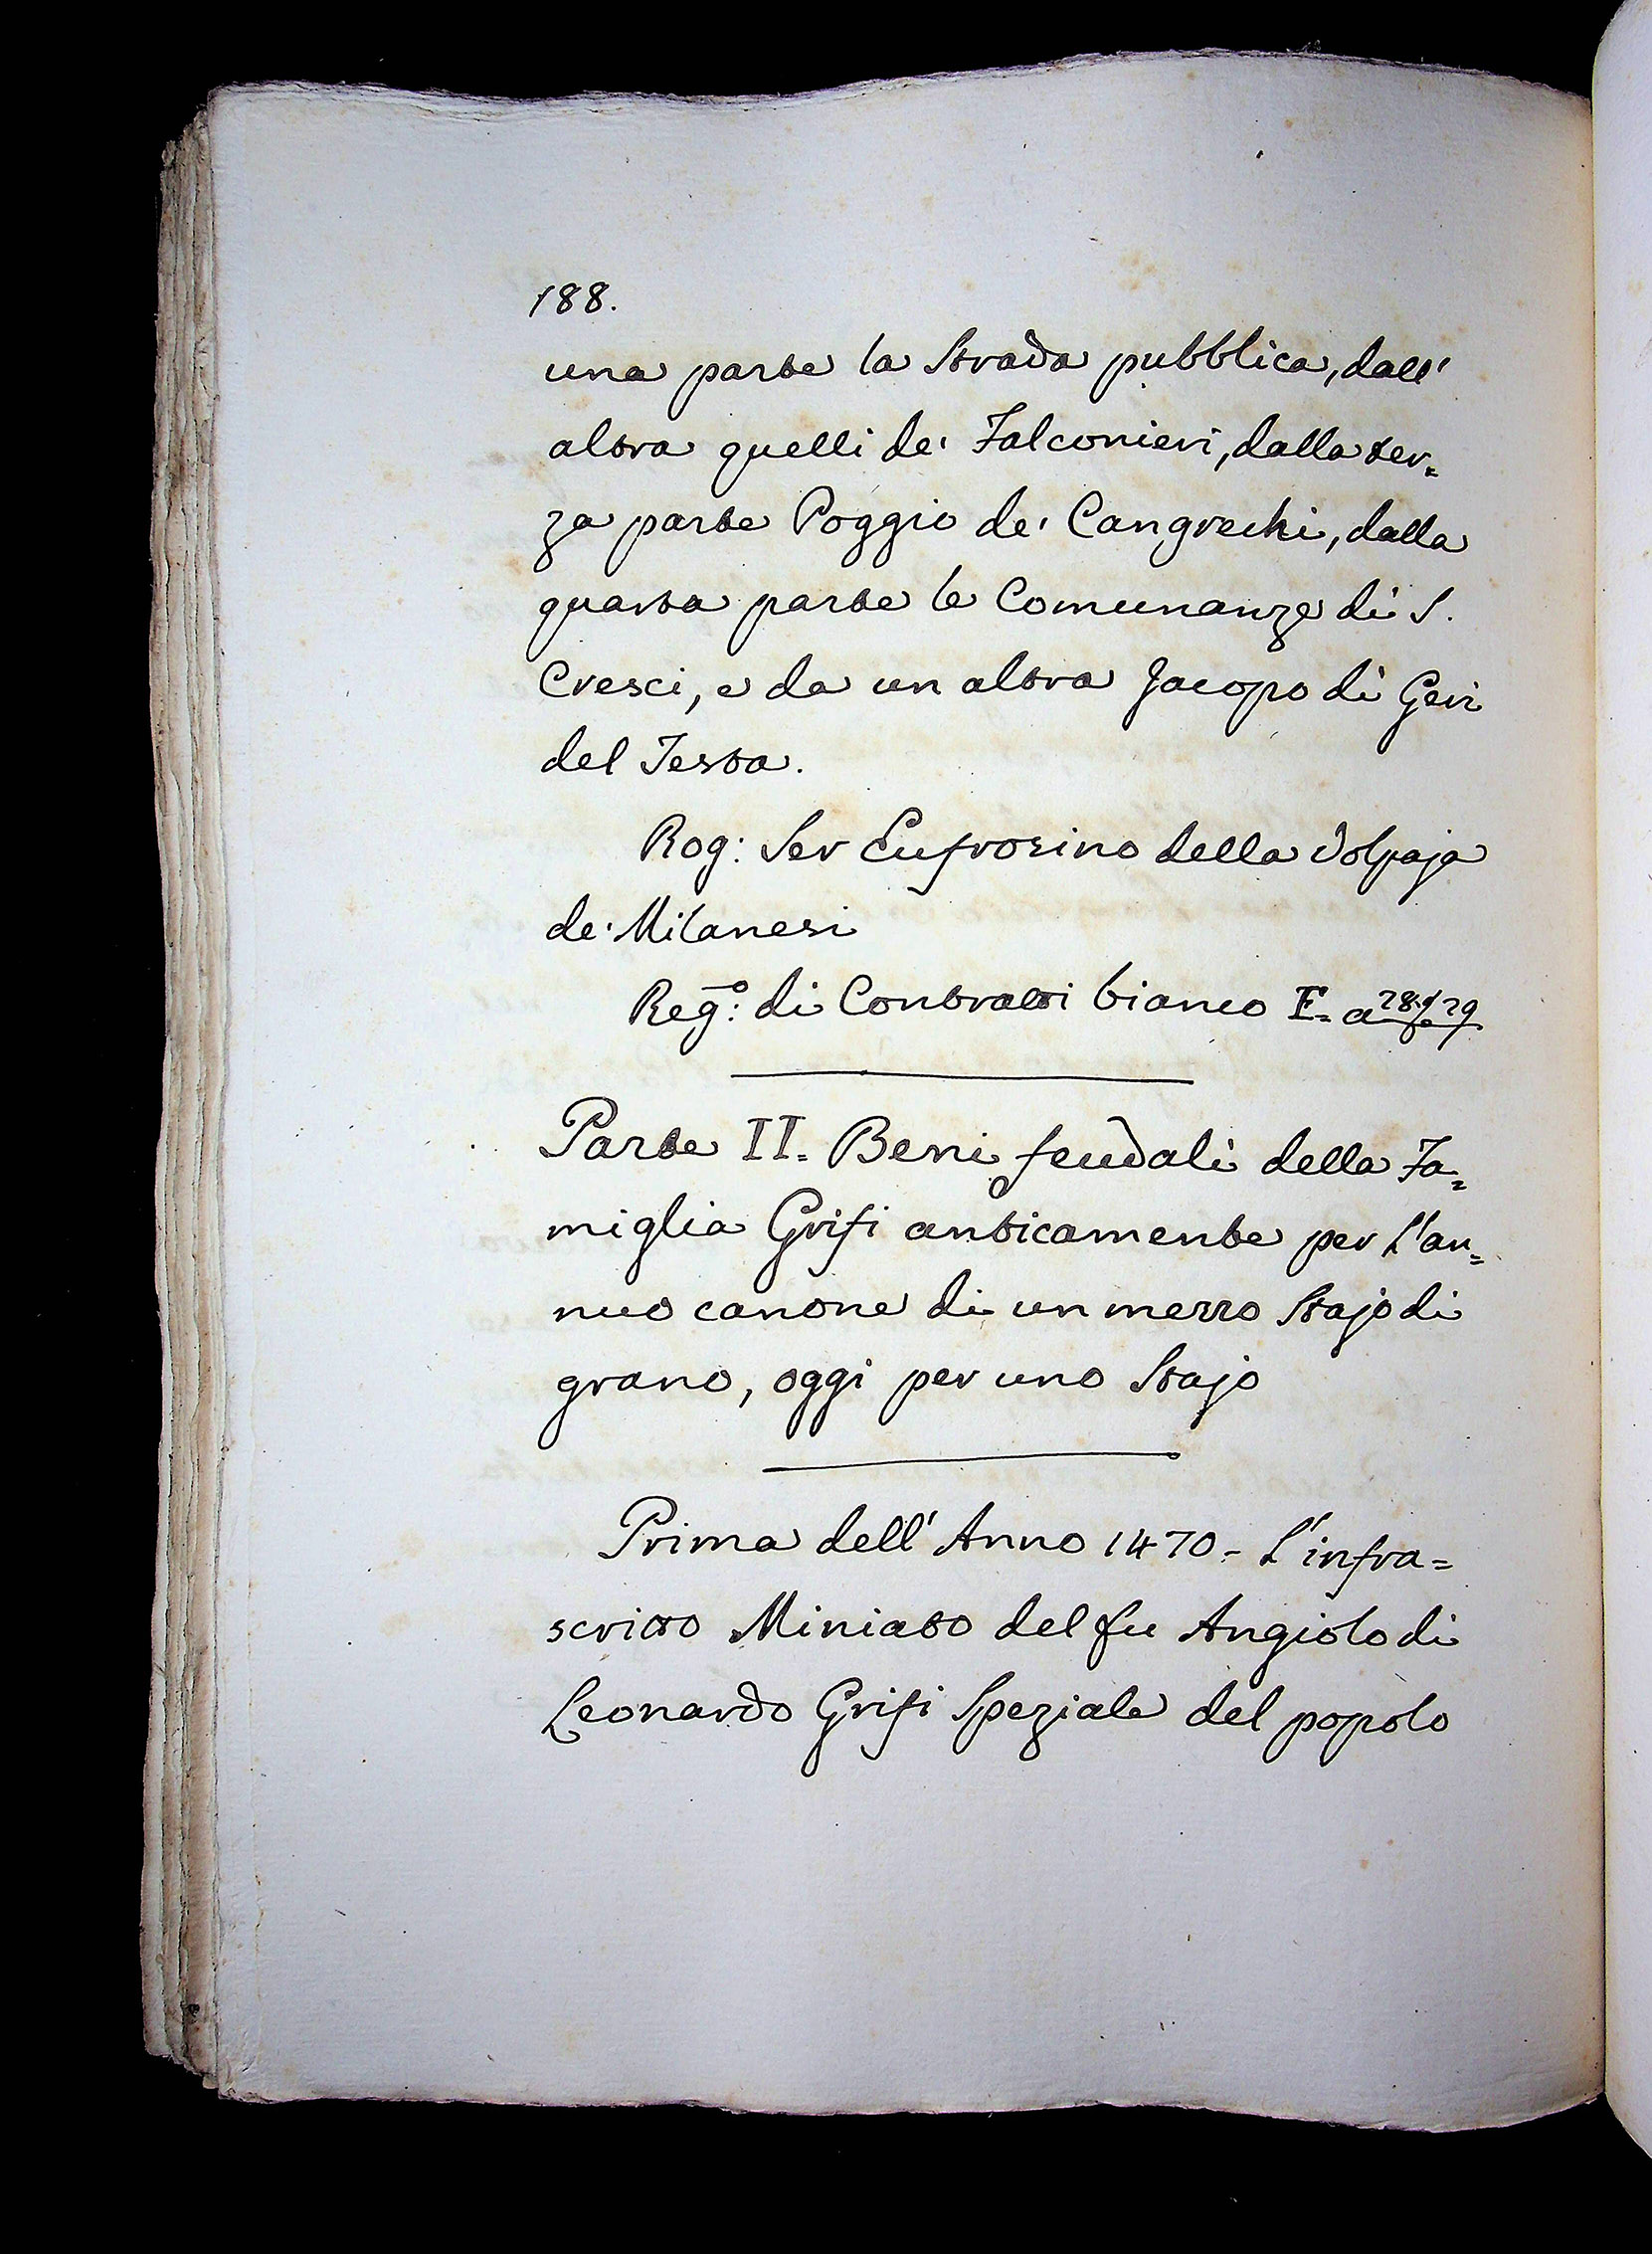 188.
una parte la Strada pubblica, dall'
altra quelli de' Falconieri, dalla ter=
za parte Poggio de' Cangrechi, dalla
quarta parte le Comunanze di S.
Cresci, e da un altra Jacopo di Geri
del Testa.
Rog: Ser Eufrosino della Volpaja
de' Milanesi
Reg.o: di Contratti bianco E= a 28. e 29
Parte II. Beni feudali della Fa=
miglia Grifi anticamente per l'an=
nuo canone di un mezzo Stajo di
grano, oggi per uno Stajo
Prima dell' Anno 1470.- L'infra=
scritto Miniato del fu Angiolo di
Leonardo Grifi Speziale del popolo